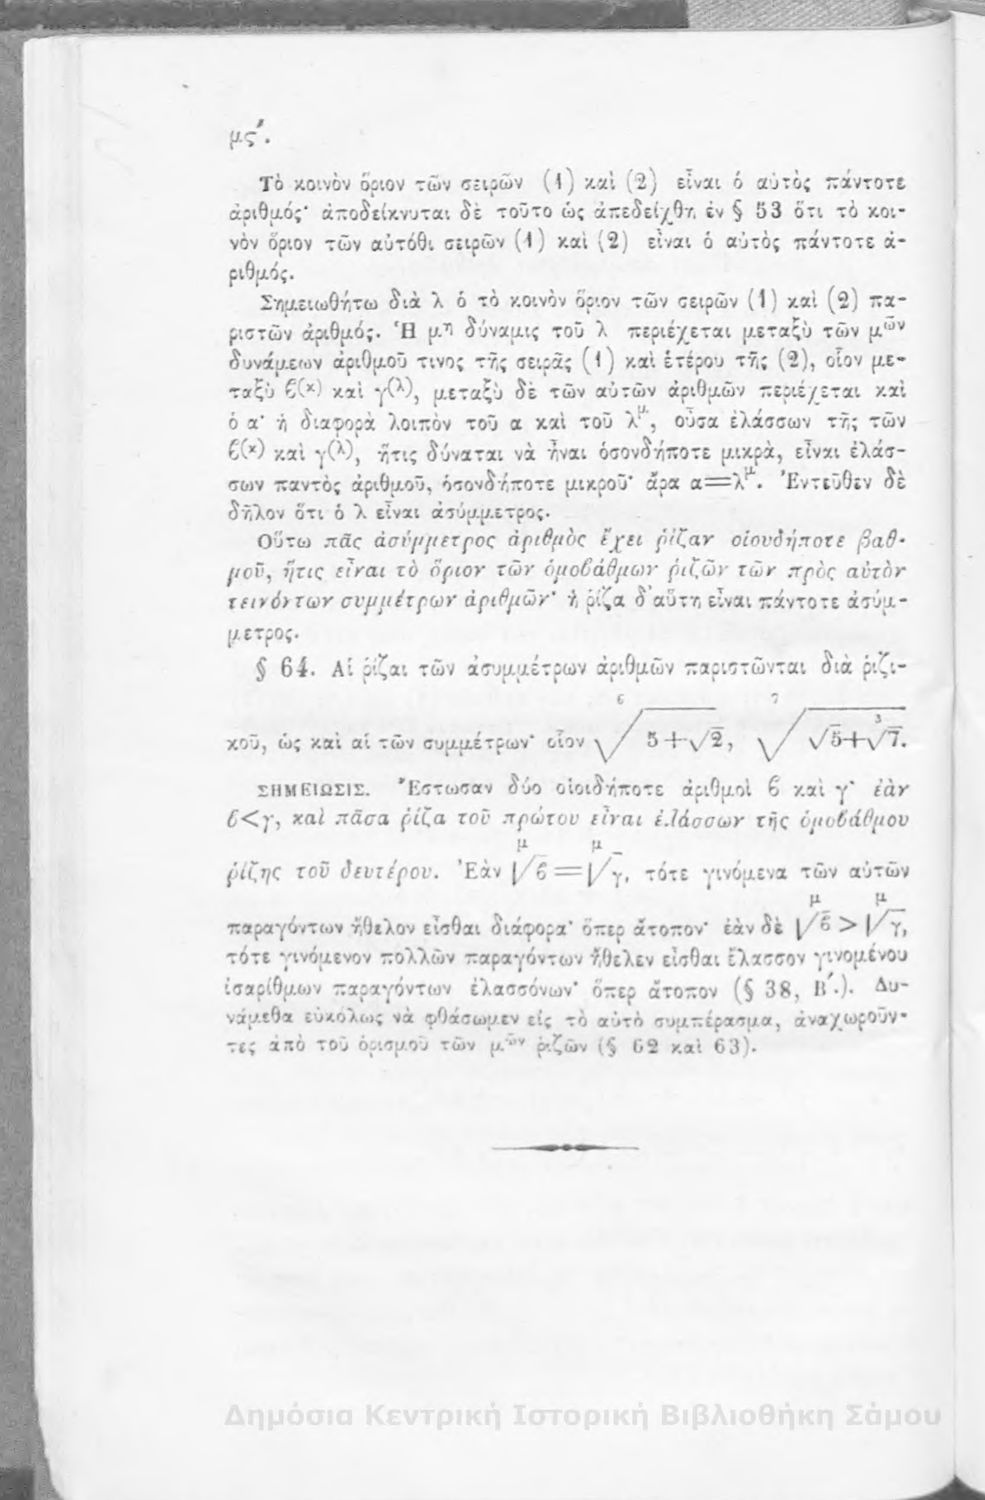 μϛ΄.
Τὸ κοινὸν ὅριον τῶν σειρῶν (1) καὶ (2) εἶναι ὁ αὐτὸς πάντοτε
ἀριθμός· ἀποδείκνυται δὲ τοῦτο ὡς ἀπεδείχθη ἐν § 53 ὅτι τὸ κοι-
νὸν ὅριον τῶν αὐτόθι σειρῶν (1) καὶ (2) εἶναι ὁ αὐτὸς πάντοτε ἀ-
ριθμός.
Σημειωθήτω διὰ λ ὁ τὸ κοινὸν ὅριον τῶν σειρῶν (1) καὶ (2) πα-
ριστῶν ἀριθμός. Ἡ μῃ δύναμις τοῦ λ περιέχεται μεταξὺ τῶν μῶν
δυνάμεων ἀριθμοῦ τινος τῆς σειρᾶς (1) καὶ ἑτέρου τῆς (2), οἷον με-
ταξὺ ϐ(κ) καὶ γ(λ), μεταξὺ δὲ τῶν αὐτῶν ἀριθμῶν περιέχεται καὶ
ὁ α· ἡ διαφορὰ λοιπὸν τοῦ α καὶ τοῦ λ^μ, οὖσα ἐλάσσων τῆς τῶν
ϐ(κ) καὶ γ(λ), ἥτις δύναται νὰ ἦναι ὁσονδήποτε μικρὰ, εἶναι ἐλάσ-
σων παντὸς ἀριθμοῦ, ὁσονδήποτε μικροῦ· ἄρα α=λ^μ. Ἐντεῦθεν δὲ
δῆλον ὅτι ὁ λ εἶναι ἀσύμμετρος.
Οὕτω πᾶς ἀσύμμετρος ἀριθμὸς ἔχει ῥίζαν οἱουδήποτε βαθ-
μοῦ, ἥτις εἶναι τὸ ὅριον τῶν ὁμοϐάθμων ῥιζῶν τῶν πρὸς αὐτὸν
τεινόντων συμμέτρων ἀριθμῶν· ἡ ῥίζα δ᾽αὕτη εἶναι πάντοτε ἀσύμ-
μετρος.
§ 64. Αἱ ῥίζαι τῶν ἀσυμμέτρων ἀριθμῶν παριστῶνται διὰ ῥιζι-
κοῦ, ὡς καὶ αἱ τῶν συμμέτρων· οἷον ⁶√(5+√2), ⁷√(√5+³√7).
ΣΗΜΕΙΩΣΙΣ. Ἔστωσαν δύο οἱοιδήποτε ἀριθμοὶ ϐ καὶ γ· ἐὰν
ϐ<γ, καὶ πᾶσα ῥίζα τοῦ πρώτου εἶναι ἐλάσσων τῆς ὁμοϐάθμου
ῥίζης τοῦ δευτέρου. Ἐὰν μ√ϐ = μ√γ, τότε γινόμενα τῶν αὐτῶν
παραγόντων ἤθελον εἶσθαι διάφορα· ὅπερ ἄτοπον· ἐὰν δὲ μ√ϐ > μ√γ,
τότε γινόμενον πολλῶν παραγόντων ἤθελεν εἶσθαι ἔλασσον γινομένου
ἰσαρίθμων παραγόντων ἐλασσόνων· ὅπερ ἄτοπον (§ 38, Β΄.). Δυ-
νάμεθα εὐκόλως νὰ φθάσωμεν εἰς τὸ αὐτὸ συμπέρασμα, ἀναχωροῦν-
τες ἀπὸ τοῦ ὁρισμοῦ τῶν μῶν ῥιζῶν (§ 62 καὶ 63).
Δημόσια Κεντρική Ιστορική Βιβλιοθήκη Σάμου